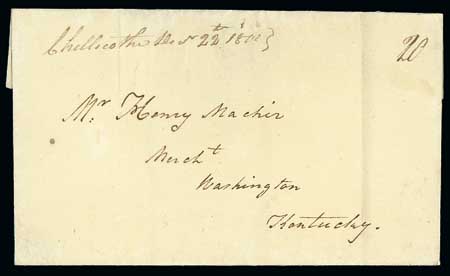 Chellicotha 22d 20
Mr. Henry Machir
Mercht
Washington
Kentucky.